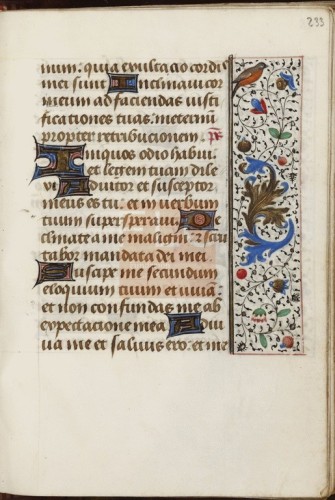 233
mum. quia exultacio cordis
mei sunt Inclinaui cor
meum ad faciendas iusti
ficationes tuas. in eterni
propter retribucionem. ps
Iniquos odio habui.
et legem tuam dile
xi Adiutor et susceptor
meus es tu: et in uerbum
tuum super speraui. De
clinate a me maligni: z scru
tabor mandata dei mei.
Suscipe me secundum
eloquium tuum et uiuā:
et non confundas me ab
expectacione mea Adiu
ua me et saluus ero. et me